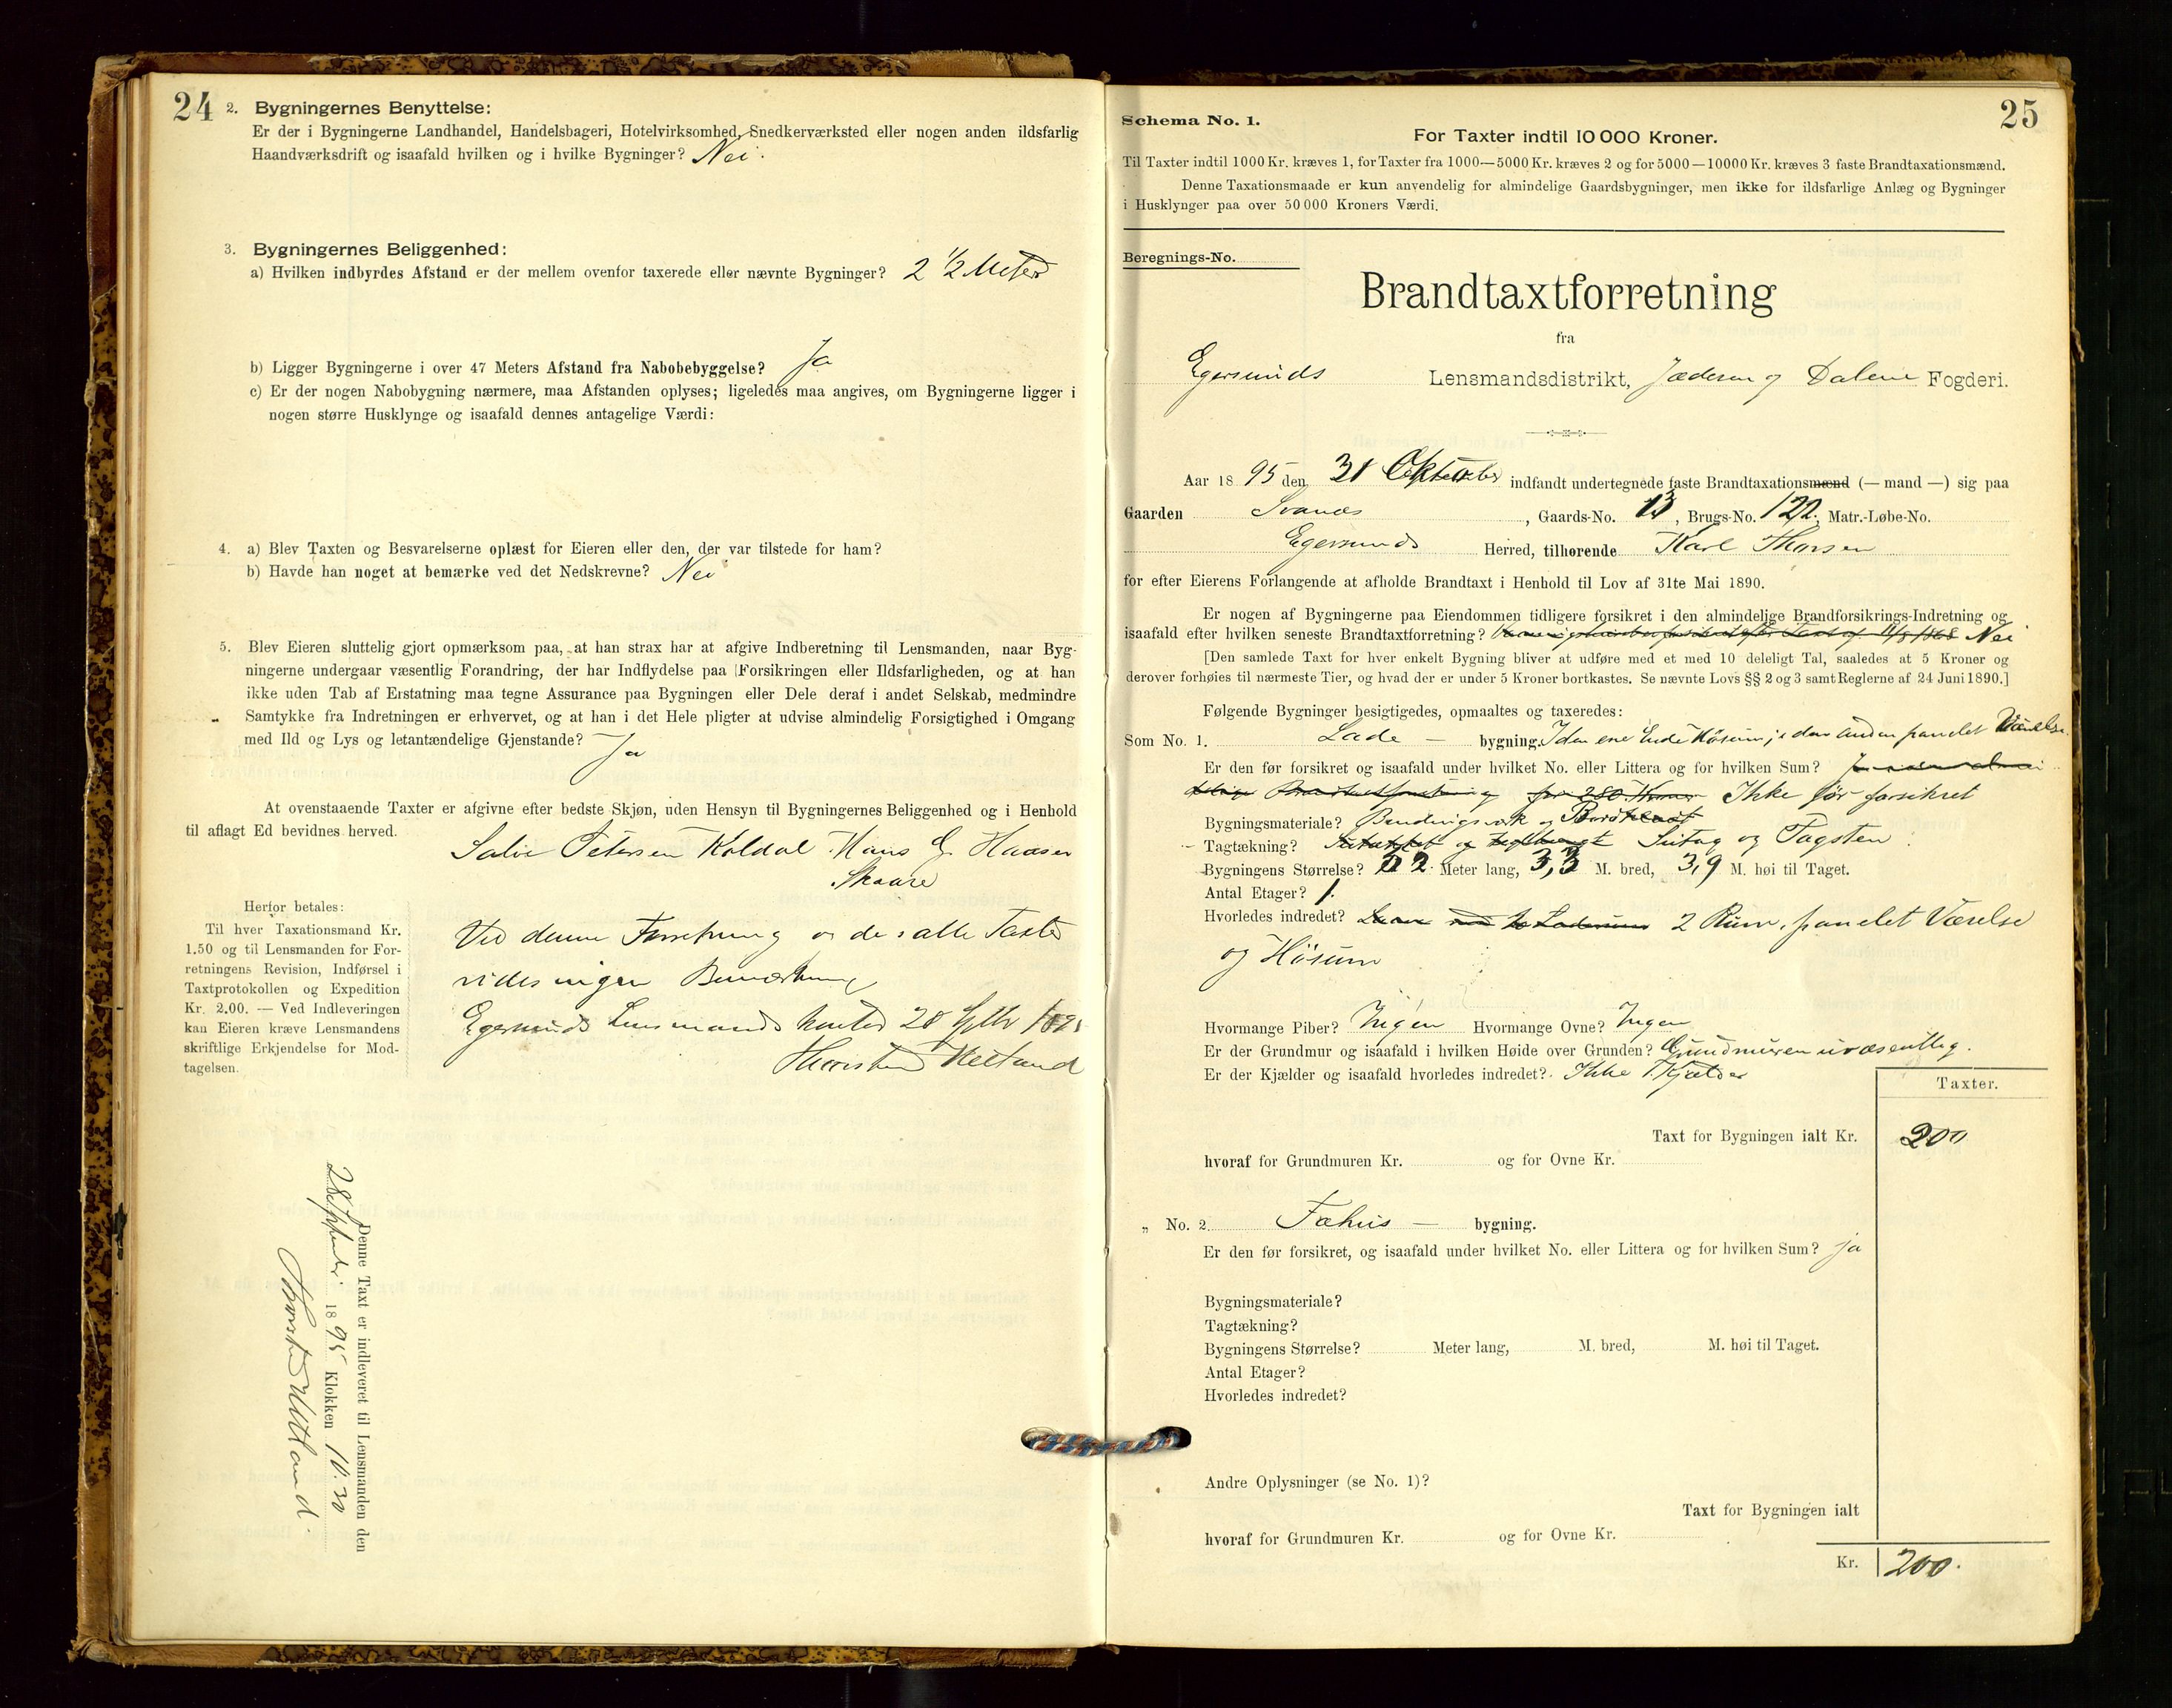 24
2. Bygningernes Benyttelse:
Er der i Bygningerne Landhandel, Handelsbageri, Hotelvirksomhed, Snedkerværksted eller nogen anden ildsfarlig
Haandværksdrift og isaafald hvilken og i hvilke Bygninger? Nei.
3. Bygningernes Beliggenhed:
a) Hvilken indbyrdes Afstand er der mellem ovenfor taxerede eller nævnte Bygninger? 2 1/2 Meter
b) Ligger Bygningerne i over 47 Meters Afstand fra Nabobebyggelse? Ja
c) Er der nogen Nabobygning nærmere, maa Afstanden oplyses; ligeledes maa angives, om Bygningerne ligger i
nogen større Husklynge og isaafald dennes antagelige Værdi:
4. a) Blev Taxten og Besvarelserne oplæst for Eieren eller den, der var tilstede for ham?
b) Havde han noget at bemærke ved det Nedskrevne? Nei
5. Blev Eieren sluttelig gjort opmærksom paa, at han strax har at afgive Indberetning til Lensmanden, naar Byg-
ningerne undergaar væsentlig Forandring, der har Indflydelse paa Forsikringen eller Ildsfarligheden, og at han
ikke uden Tab af Erstatning maa tegne Assurance paa Bygningen eller Dele deraf i andet Selskab, medmindre
Samtykke fra Indretningen er erhvervet, og at han i det Hele pligter at udvise almindelig Forsigtighed i Omgang
med Ild og Lys og letantændelige Gjenstande? Ja
At ovenstaaende Taxter er afgivne efter bedste Skjøn, uden Hensyn til Bygningernes Beliggenhed og i Henhold
til aflagt Ed bevidnes herved.
Salve Petersen Koldal Hans G. Haasen
Skaare
Herfor betales:
Til hver Taxationsmand Kr.
1.50 og til Lensmanden for For-
retningens Revision, Indførsel i
Taxtprotokollen og Expedition
Kr. 2.00. — Ved Indleveringen
kan Eieren kræve Lensmandens
skriftlige Erkjendelse for Mod-
tagelsen.
Ved denne Forretning og de satte Taxter
vides ingen Bemærkning
Egersunds Lensmandskontor 28 Septbr 1895
Thorsten Hetland
Denne Taxt er indleveret til Lensmanden den
28 September 1895 Klokken 10.30
Thorsten Hetland.
25
Schema No. 1.
For Taxter indtil 10 000 Kroner.
Til Taxter indtil 1000 Kr. kræves 1, for Taxter fra 1000—5000 Kr. kræves 2 og for 5000—10000 Kr. kræves 3 faste Brandtaxationsmænd.
Denne Taxationsmaade er kun anvendelig for almindelige Gaardsbygninger, men ikke for ildsfarlige Anlæg og Bygninger
i Husklynger paa over 50 000 Kroners Værdi.
Beregnings-No.
Brandtaxtforretning
fra
Egersunds Lensmandsdistrikt, Jæderen og Dalene Fogderi.
Aar 1895 den 31 Oktober indfandt undertegnede faste Brandtaxationsmænd (— mand —) sig paa
Gaarden Svanæs, Gaards-No. 13, Brugs-No. 122. Matr.-Løbe-No.
Egersunds Herred, tilhørende Karl Thorsen
for efter Eierens Forlangende at afholde Brandtaxt i Henhold til Lov af 31te Mai 1890.
Er nogen af Bygningerne paa Eiendommen tidligere forsikret i den almindelige Brandforsikrings-Indretning og
isaafald efter hvilken seneste Brandtaxtforretning? Nei
[Den samlede Taxt for hver enkelt Bygning bliver at udføre med et med 10 deleligt Tal, saaledes at 5 Kroner og
derover forhøies til nærmeste Tier, og hvad der er under 5 Kroner bortkastes. Se nævnte Lovs §§ 2 og 3 samt Reglerne af 24 Juni 1890.]
Følgende Bygninger besigtigedes, opmaaltes og taxeredes:
Som No. 1. Lade — bygning. I den ene Ende Høsum, i den anden panelet Værelse
Er den før forsikret og isaafald under hvilket No. eller Littera og for hvilken Sum?
Ikke før forsikret
Bygningsmateriale? Bindingsværk og Bordklædt
Tagtækning? Sutag og Tagsten
Bygningens Størrelse? Meter lang, 3,3 M. bred, 3,9 M. høi til Taget.
Antal Etager? 1.
Hvorledes indredet? 2 Rum, panelet Værelse
og Høsum
Hvormange Piber? Ingen Hvormange Ovne? Ingen
Er der Grundmur og isaafald i hvilken Høide over Grunden? Grundmuren uvæsentlig.
Er der Kjælder og isaafald hvorledes indredet? Ikke Kjælder
Taxter.
Taxt for Bygningen ialt Kr. 200
hvoraf for Grundmuren Kr. og for Ovne Kr.
„ No. 2. Fæhus — bygning.
Er den før forsikret, og isaafald under hvilket No. eller Littera og for hvilken Sum? ja
Bygningsmateriale?
Tagtækning?
Bygningens Størrelse? Meter lang, M. bred, M. høi til Taget.
Antal Etager?
Hvorledes indredet?
Andre Oplysninger (se No. 1)?
Taxt for Bygningen ialt
hvoraf for Grundmuren Kr. og for Ovne Kr.
Kr. 200.